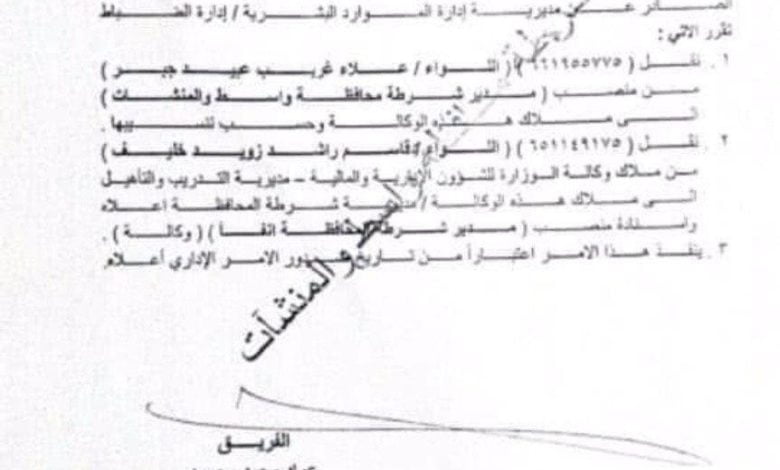 الصادر عن مديرية إدارة الموارد البشرية / إدارة الضباط
تقرر الاتي :
١ . نقل ( ٦٦١٩٥٥٧٧٥ ) ( اللواء / علاء غريب عبيد جبر )
من منصب ( مدير شرطة محافظة واسط والمنشآت )
الى ملاك هذه الوكالة وحسب تنسيبها .
٢ . نقل ( ٦٥١١٤٩١٧٥ ) ( اللواء / قاسم راشد زويد خليف )
من ملاك وكالة الوزارة للشؤون الإدارية والمالية – مديرية التدريب والتأهيل
الى ملاك هذه الوكالة / مديرية شرطة المحافظة اعلاه
واسنادة منصب ( مدير شرطة المحافظة انفاً ) ( وكالة ) .
٣ . ينفذ هذا الامر اعتباراً من تاريخ صدور الامر الإداري أعلاه
والمنشآت
الفريق